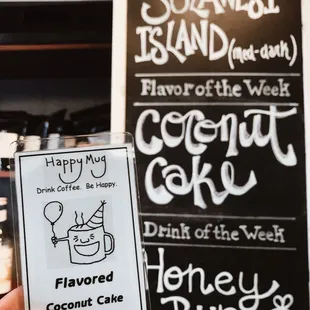 Happy Mug
Drink Coffee. Be Happy.
Flavored
Coconut Cake
ISLAND (med-dark)
Flavor of the Week
Coconut
Cake
Drink of the Week
Honey